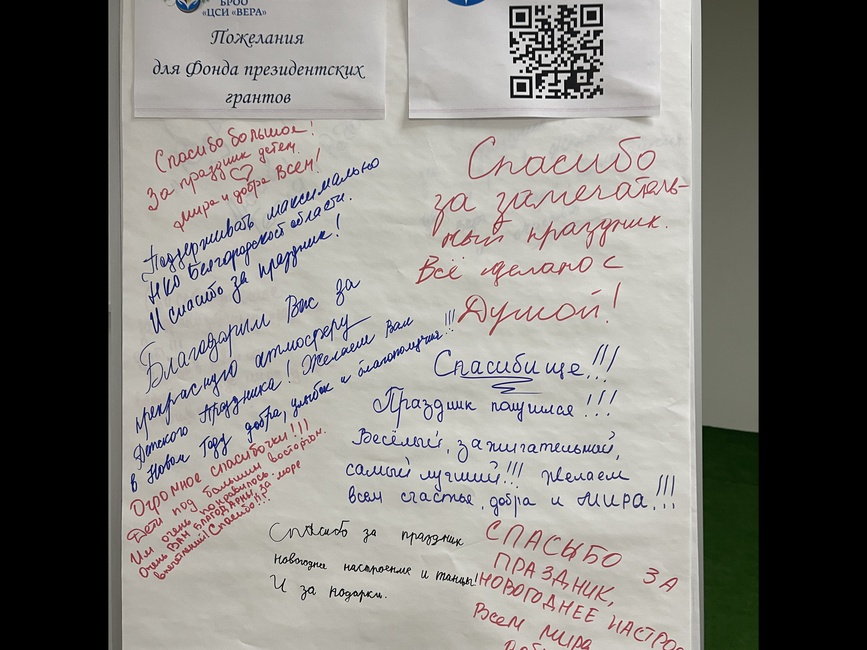 БРОО
«ЦСИ «ВЕРА»
Пожелания
для Фонда президентских
грантов
Спасибо большое!
За праздник детем.
Мира и добра Всем!
Поддерживать максимально
НКО Белгородской области.
И спасибо за праздник!
Благодарим Вас за
прекрасную атмосферу
Детского Праздника! Желаем Вам
в Новом Году добра, улыбок и благополучия!!!
Огромное спасибочки!!!
Дети под большим восторгом.
Им очень понравилось
Очень ВАМ БЛАГОДАРНЫ за море
впечатлений! Спасибо!!!
Спасибо
за замечатель-
ный праздник.
Всё сделано с
Душой!
Спасибище!!!
Праздник получился!!!
Весёлый, зажигательный,
самый лучший!!! Желаем
всем счастья, добра и МИРА!!!
Спасибо за праздник
новогоднее настроение и танцы!
И за подарки.
СПАСЫБО ЗА
ПРАЗДНИК,
НОВОГОДНЕЕ НАСТРОЕ
Всем мира